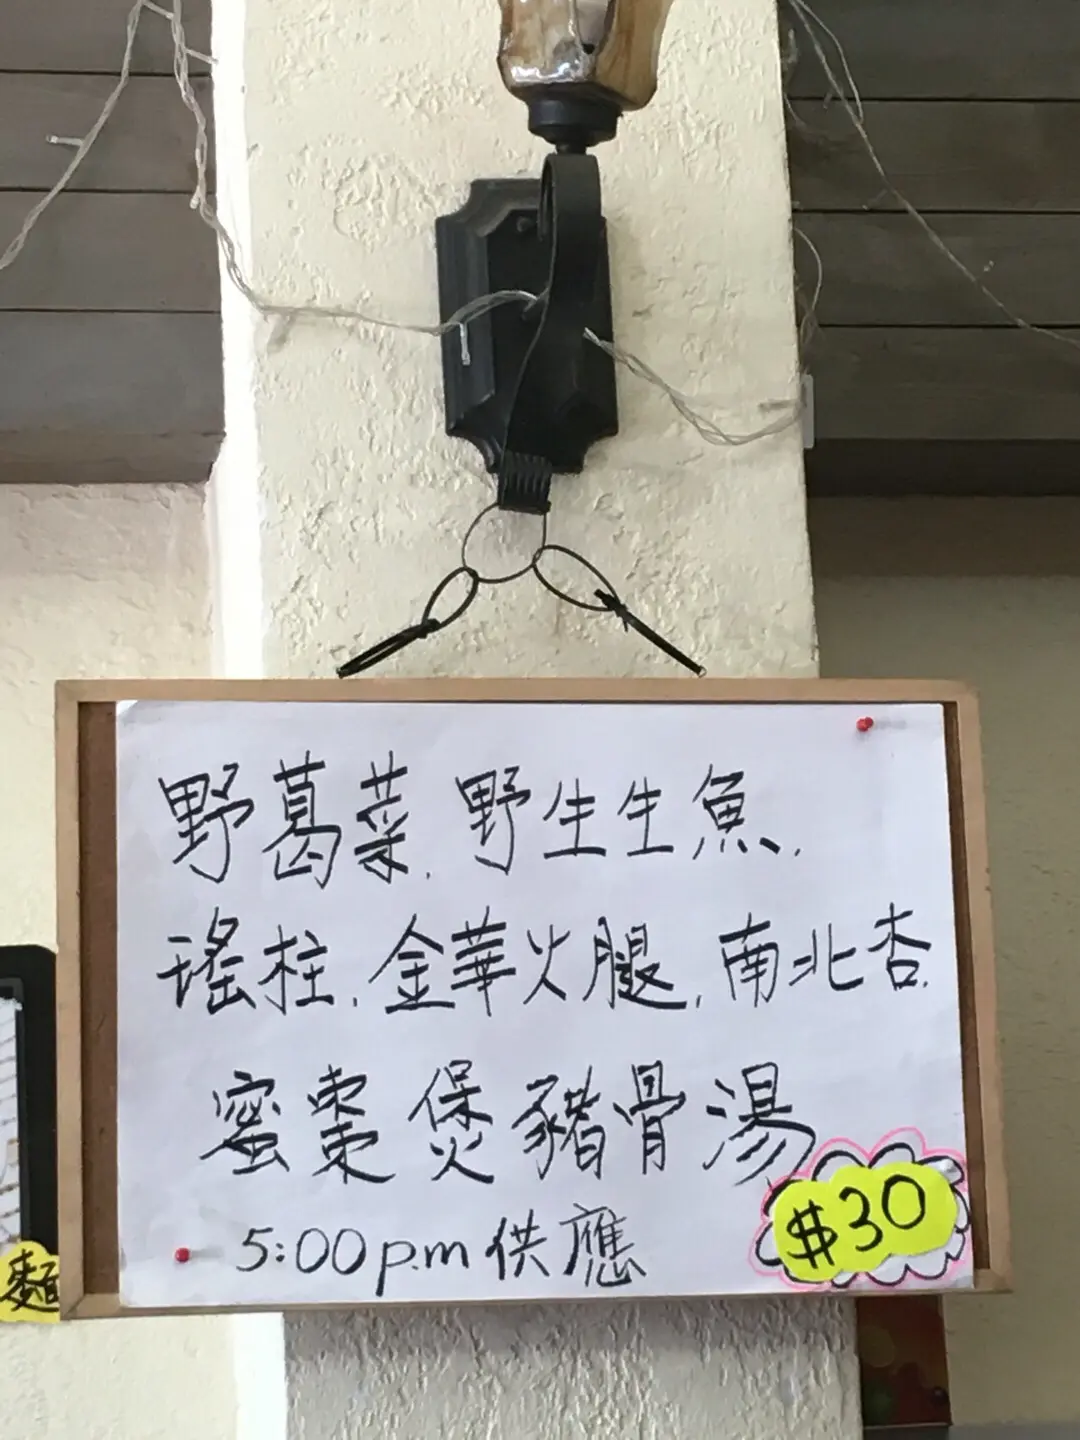 野葛菜.野生生魚.
瑤柱.金華火腿.南北杏.
蜜棗煲豬骨湯
$30
5:00p.m供應
麵